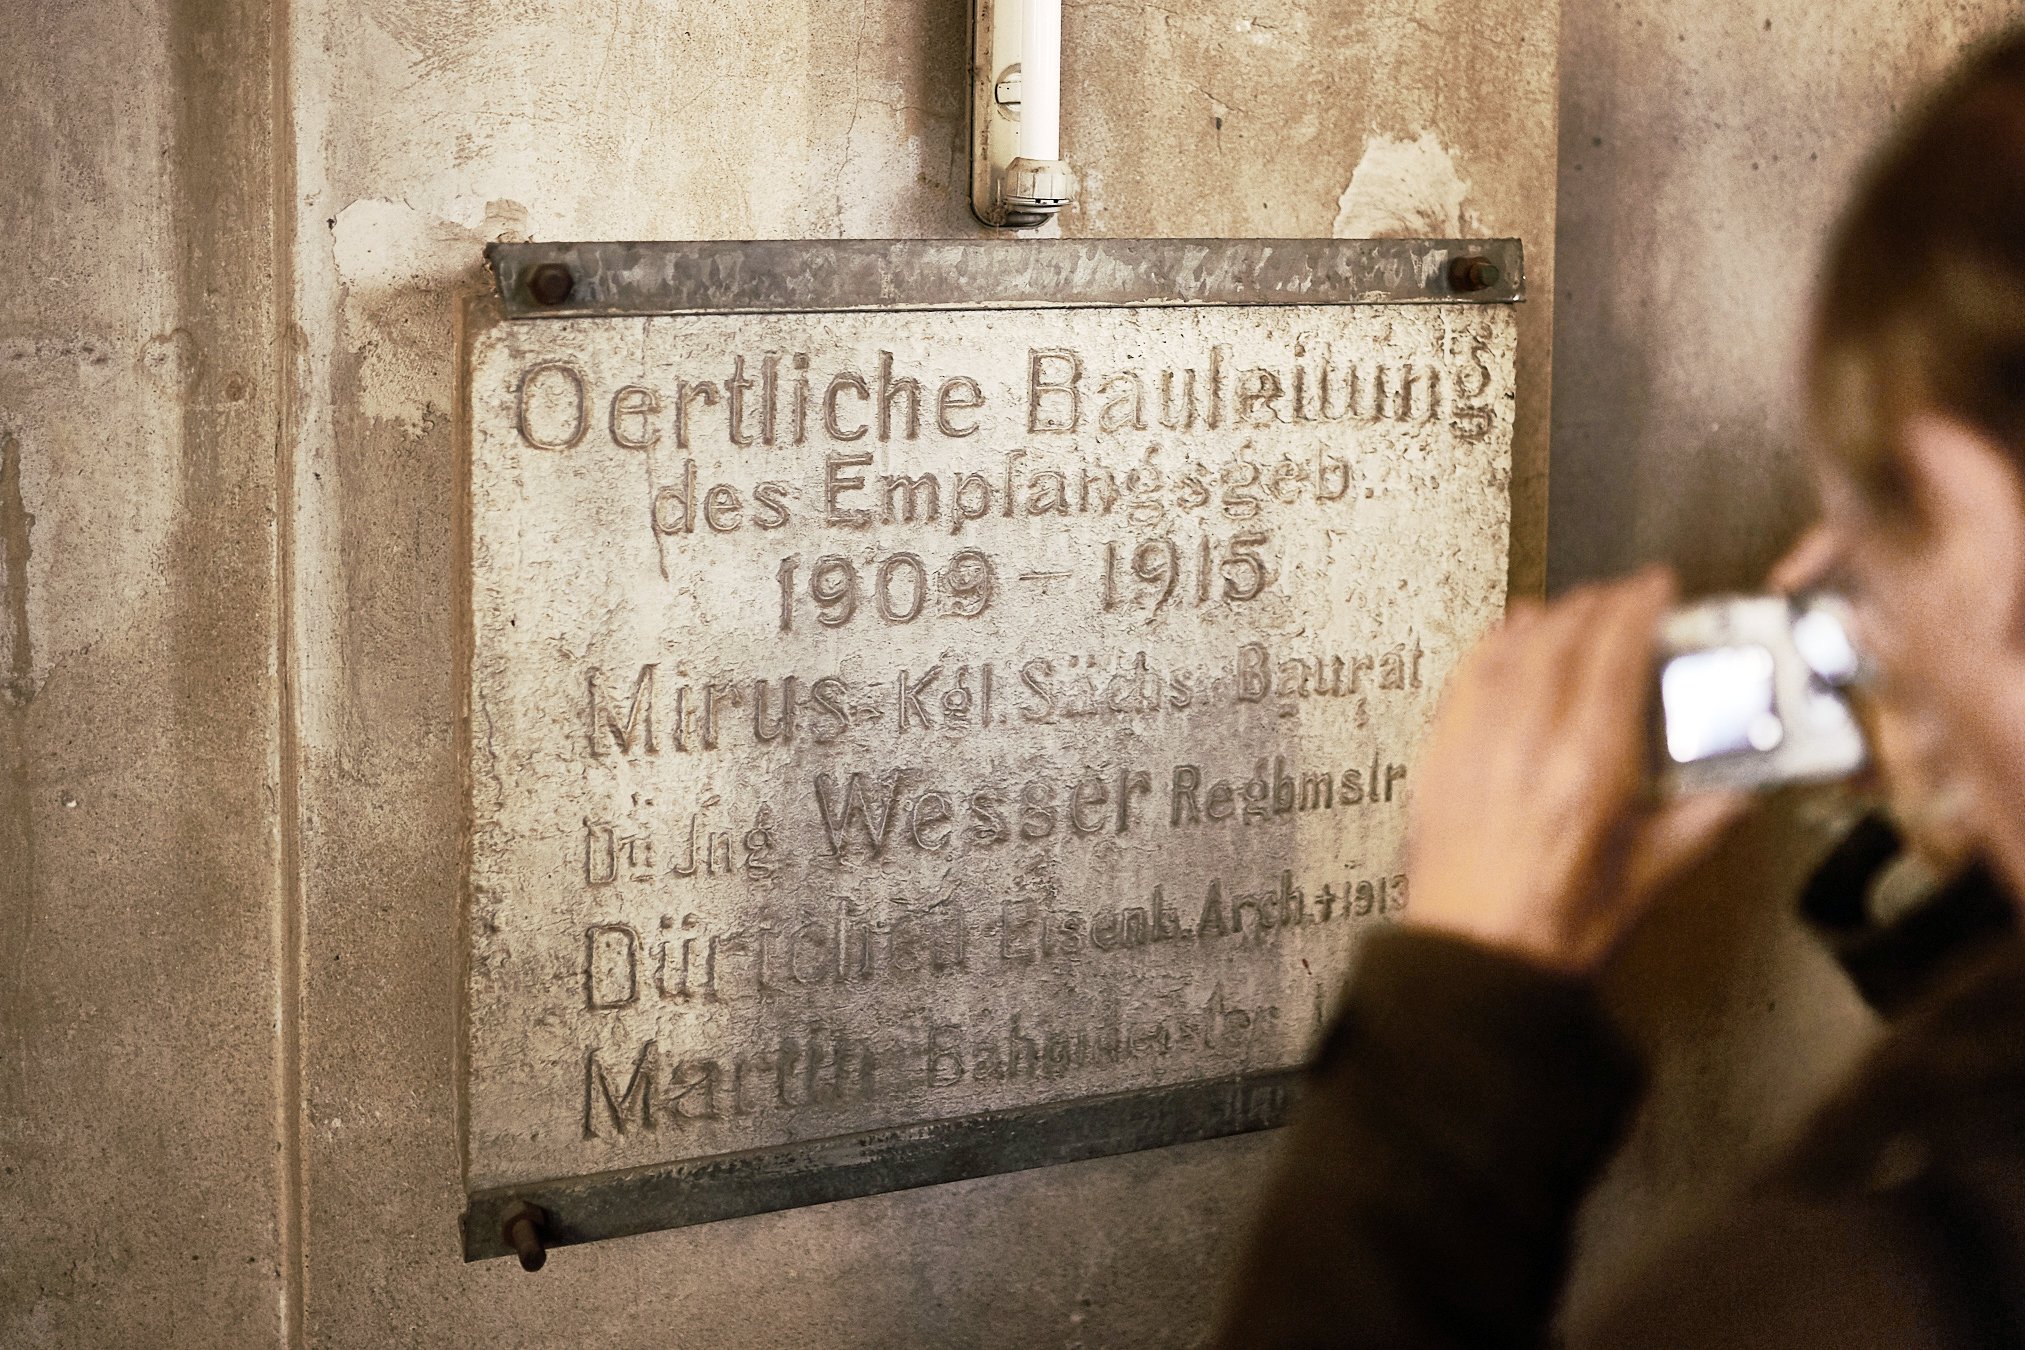 Oertliche Bauleitung
des Empfangsgeb.
1909 – 1915
Mirus Kgl. Sächs. Baurat
Dr. Jng Wesser Regbmstr
Eisenb. Arch. † 1913
Martin Bahnmeister